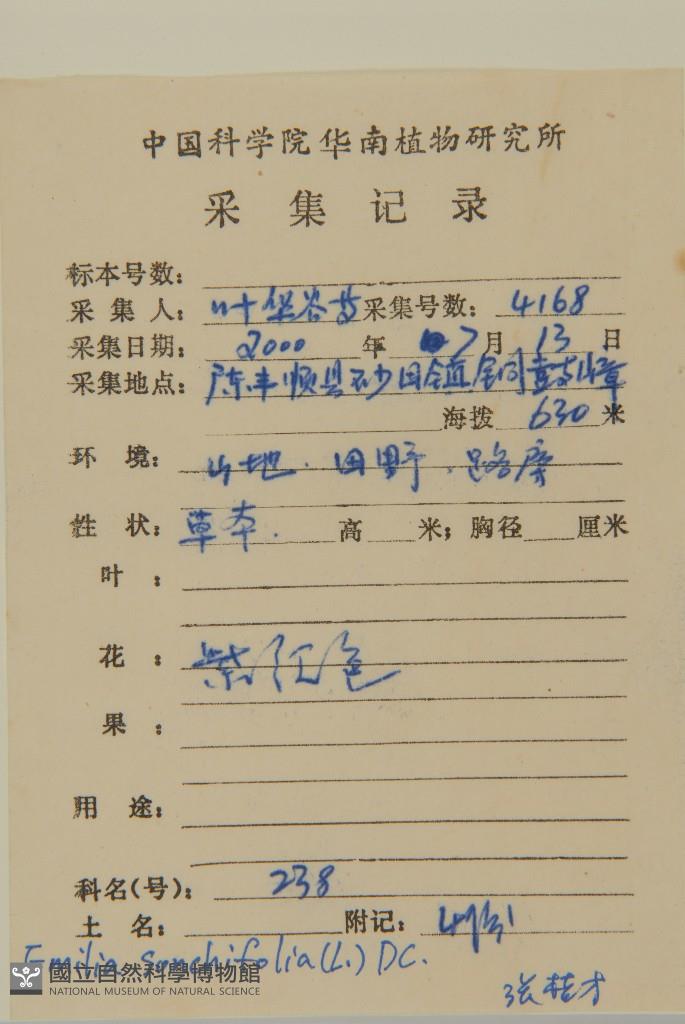 中国科学院华南植物研究所
采集记录
标本号数：
采集人：叶华谷等 采集号数：4168
采集日期：2000年 7月13日
采集地点：广东丰顺县砂田镇铜鼓嶂
海拨 630 米
环境：山地．田野．路旁
性状：草本． 高 米；胸径 厘米
叶：
花：紫红色
果：
用途：
科名(号)：238
土名： 附记：4份
Emilia sonchifolia (L.) DC.
國立自然科學博物館
NATIONAL MUSEUM OF NATURAL SCIENCE
张桂才